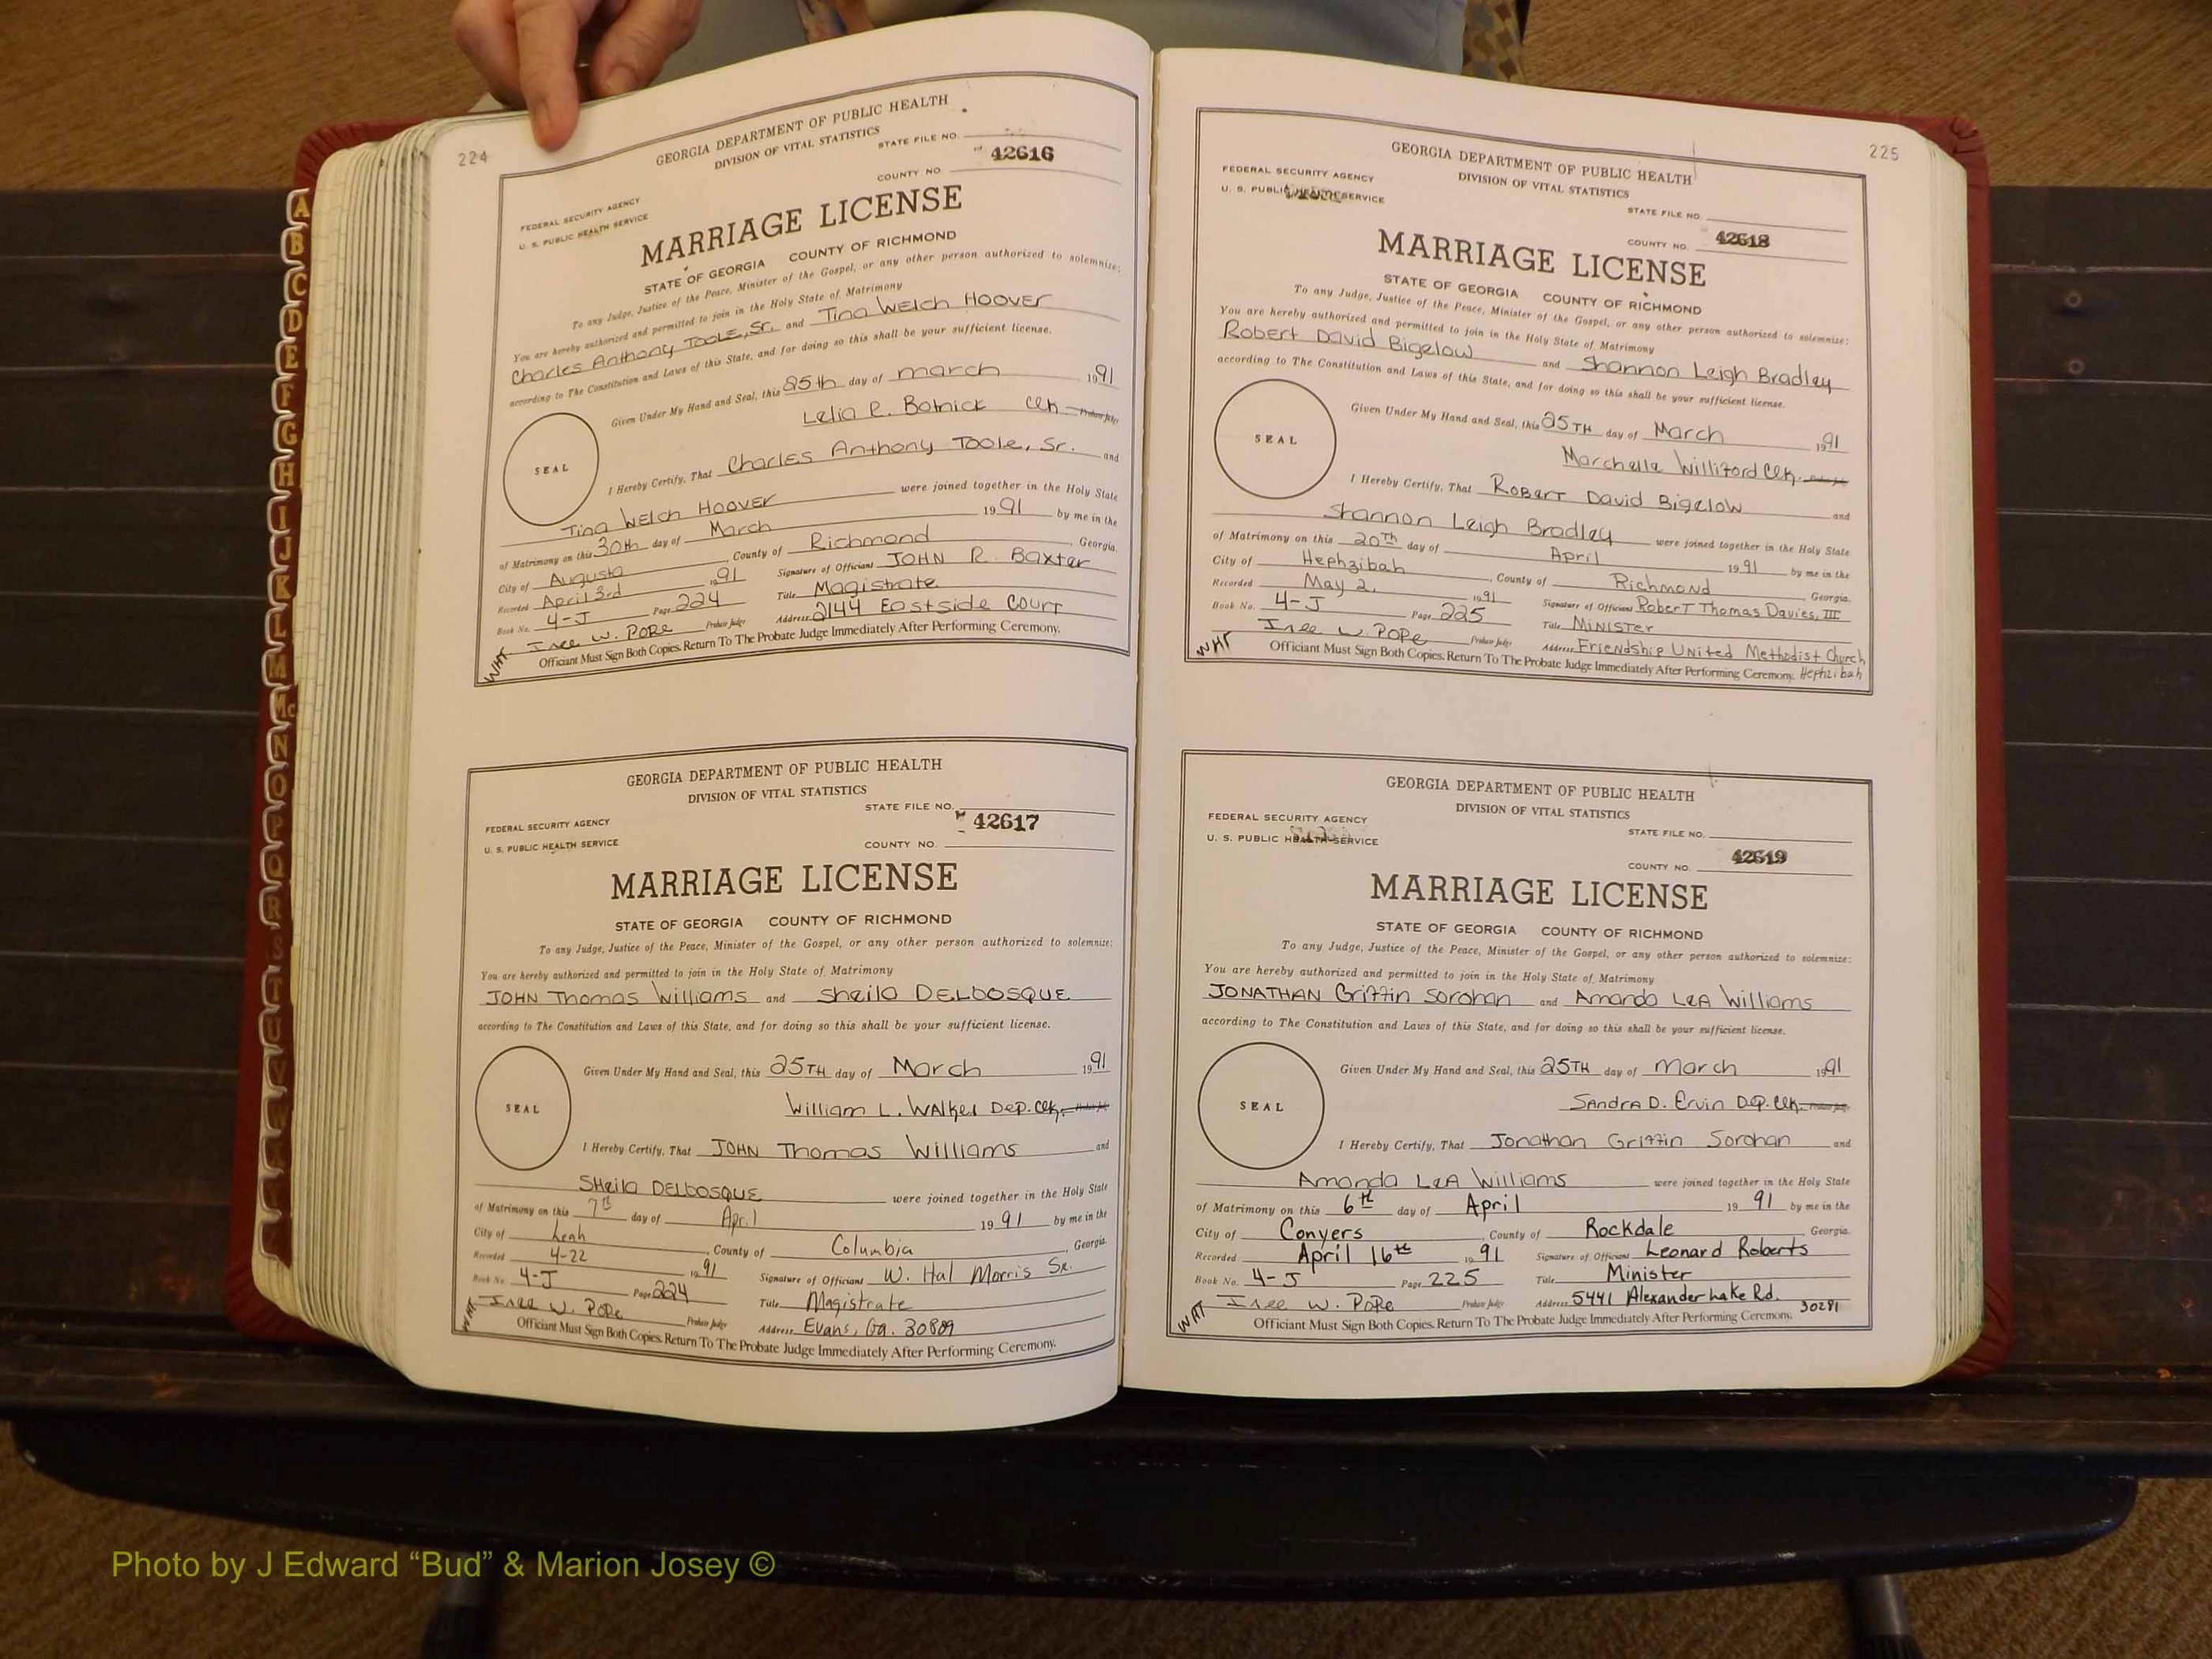 224
GEORGIA DEPARTMENT OF PUBLIC HEALTH
DIVISION OF VITAL STATISTICS
STATE FILE NO.
42616
COUNTY NO
FEDERAL SECURITY AGENCY
U. S. PUBLIC HEALTH SERVICE
MARRIAGE LICENSE
STATE OF GEORGIA COUNTY OF RICHMOND
To any Judge, Justice of the Peace, Minister of the Gospel, or any other person authorized to solemnize:
You are hereby authorized and permitted to join in the Holy State of Matrimony
Charles Anthony Toole, Sr. and Tina Welch Hoover
according to The Constitution and Laws of this State, and for doing so this shall be your sufficient license.
Given Under My Hand and Seal, this 25th day of march 1991
Lelia R. Botnick Clk. Probate Judge
SEAL
I Hereby Certify, That Charles Anthony Toole, Sr. and
Tina Welch Hoover were joined together in the Holy State
of Matrimony on this 30th day of March 1991 by me in the
City of Augusta, County of Richmond, Georgia.
Recorded April 3rd 1991 Signature of Officiant JOHN R. Baxter
Book No. 4-J Page 224 Title Magistrate
Isee W. Pope Probate Judge Address 2144 Eastside Court
WHT Officiant Must Sign Both Copies. Return To The Probate Judge Immediately After Performing Ceremony.
GEORGIA DEPARTMENT OF PUBLIC HEALTH
DIVISION OF VITAL STATISTICS
STATE FILE NO.
42617
FEDERAL SECURITY AGENCY
U. S. PUBLIC HEALTH SERVICE
COUNTY NO.
MARRIAGE LICENSE
STATE OF GEORGIA COUNTY OF RICHMOND
To any Judge, Justice of the Peace, Minister of the Gospel, or any other person authorized to solemnize:
You are hereby authorized and permitted to join in the Holy State of Matrimony
JOHN Thomas Williams and Sheila DELBOSQUE
according to The Constitution and Laws of this State, and for doing so this shall be your sufficient license.
Given Under My Hand and Seal, this 25TH day of March 1991
William L. Walker Dep. Clk.
SEAL
I Hereby Certify, That JOHN Thomas Williams and
SHeila DELBOSQUE were joined together in the Holy State
of Matrimony on this 7th day of April 1991 by me in the
City of Leah, County of Columbia, Georgia.
Recorded 4-22 1991 Signature of Officiant W. Hal Morris Sr.
Book No. 4-J Page 224 Title Magistrate
Isee W. Pope Probate Judge Address Evans, Ga. 30809
WHT Officiant Must Sign Both Copies. Return To The Probate Judge Immediately After Performing Ceremony.
225
GEORGIA DEPARTMENT OF PUBLIC HEALTH
DIVISION OF VITAL STATISTICS
FEDERAL SECURITY AGENCY
U. S. PUBLIC HEALTH SERVICE
STATE FILE NO.
COUNTY NO. 42618
MARRIAGE LICENSE
STATE OF GEORGIA COUNTY OF RICHMOND
To any Judge, Justice of the Peace, Minister of the Gospel, or any other person authorized to solemnize:
You are hereby authorized and permitted to join in the Holy State of Matrimony
Robert David Bigelow and Shannon Leigh Bradley
according to The Constitution and Laws of this State, and for doing so this shall be your sufficient license.
Given Under My Hand and Seal, this 25TH day of March 1991
Marchelle Williford Clk.
SEAL
I Hereby Certify, That Robert David Bigelow and
Shannon Leigh Bradley were joined together in the Holy State
of Matrimony on this 20th day of April 1991 by me in the
City of Hephzibah, County of Richmond Georgia.
Recorded May 2, 1991 Signature of Officiant Robert Thomas Davies, III
Book No. 4-J Page 225 Title Minister
Isee W. Pope Probate Judge Address Friendship United Methodist Church
WHT Officiant Must Sign Both Copies. Return To The Probate Judge Immediately After Performing Ceremony. Hephzibah
GEORGIA DEPARTMENT OF PUBLIC HEALTH
DIVISION OF VITAL STATISTICS
FEDERAL SECURITY AGENCY
U. S. PUBLIC HEALTH SERVICE
STATE FILE NO.
COUNTY NO. 42619
MARRIAGE LICENSE
STATE OF GEORGIA COUNTY OF RICHMOND
To any Judge, Justice of the Peace, Minister of the Gospel, or any other person authorized to solemnize:
You are hereby authorized and permitted to join in the Holy State of Matrimony
JONATHAN Griffin Sorohan and Amanda LeA Williams
according to The Constitution and Laws of this State, and for doing so this shall be your sufficient license.
Given Under My Hand and Seal, this 25TH day of March 1991
Sandra D. Ervin Dep. Clk.
SEAL
I Hereby Certify, That Jonathan Griffin Sorohan and
Amanda LeA Williams were joined together in the Holy State
of Matrimony on this 6th day of April 1991 by me in the
City of Conyers, County of Rockdale Georgia.
Recorded April 16th 1991 Signature of Officiant Leonard Roberts
Book No. 4-J Page 225 Title Minister
Isee W. Pope Probate Judge Address 5441 Alexander Lake Rd.
WHT Officiant Must Sign Both Copies. Return To The Probate Judge Immediately After Performing Ceremony. 30281
A
B
C
D
E
F
G
H
I
J
K
L
M
Mc
N
O
P
Q
R
S
T
U
V
Photo by J Edward “Bud” & Marion Josey ©